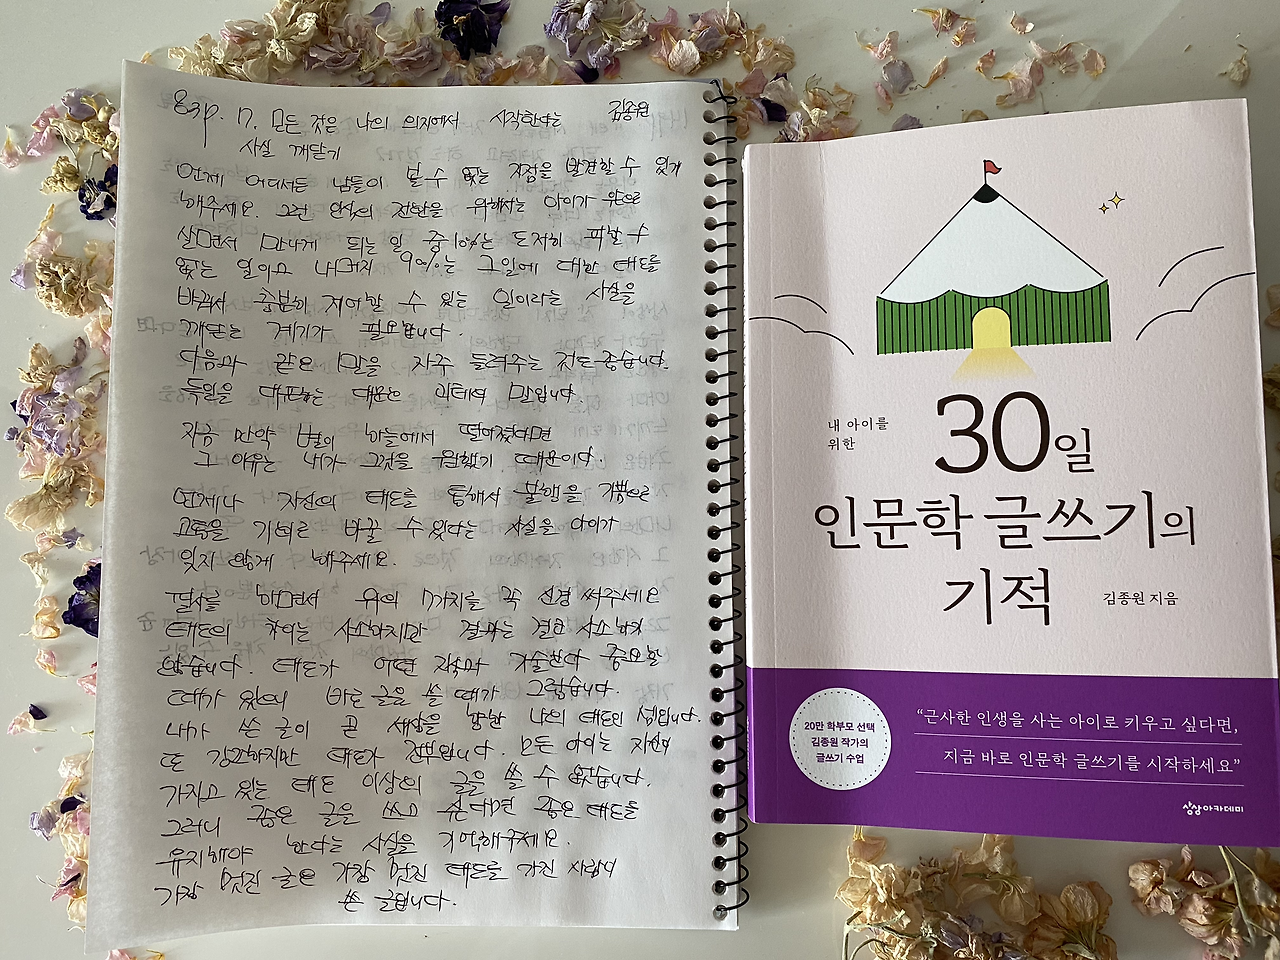 83p. 17. 모든 것은 나의 의지에서 시작한다는 김종원
사실 깨닫기
언제 어디서든 남들이 볼 수 없는 지점을 발견할 수 있게
해주세요. 그런 인식의 전환을 위해서는 아이가 앞으로
살면서 만나게 되는 일 중 10%는 도저히 피할 수
없는 일이고 나머지 90%는 그 일에 대한 태도를
바꿔서 충분히 제어할 수 있는 일이라는 사실을
깨닫는 계기가 필요합니다.
다음과 같은 말을 자주 들려주는 것도 좋습니다.
독일을 대표하는 대문호 괴테의 말입니다.
지금 만약 별이 하늘에서 떨어졌다면
그 이유는 내가 그것을 원했기 때문이다.
언제나 자신의 태도를 통해서 불행을 기쁨으로
고통을 기회로 바꿀 수 있다는 사실을 아이가
잊지 않게 해주세요.
필사를 하면서 위의 7가지를 꼭 신경 써주세요
태도의 차이는 사소하지만 결과는 결코 사소하지
않습니다. 태도가 어떤 지식과 기술보다 중요할
때가 있으니 바로 글을 쓸 때가 그렇습니다.
내가 쓴 글이 곧 세상을 향한 나의 태도인 셈입니다.
또 강조하지만 태도가 전부입니다. 모든 아이는 자신이
가지고 있는 태도 이상의 글을 쓸 수 없습니다.
그러니 좋은 글을 쓰고 싶다면 좋은 태도를
유지해야 한다는 사실을 기억해주세요.
가장 멋진 글은 가장 멋진 태도를 가진 사람이
쓴 글입니다.
내 아이를
위한
30일
인문학 글쓰기의
기적
김종원 지음
20만 학부모 선택
김종원 작가의
글쓰기 수업
“근사한 인생을 사는 아이로 키우고 싶다면,
지금 바로 인문학 글쓰기를 시작하세요”
상상아카데미